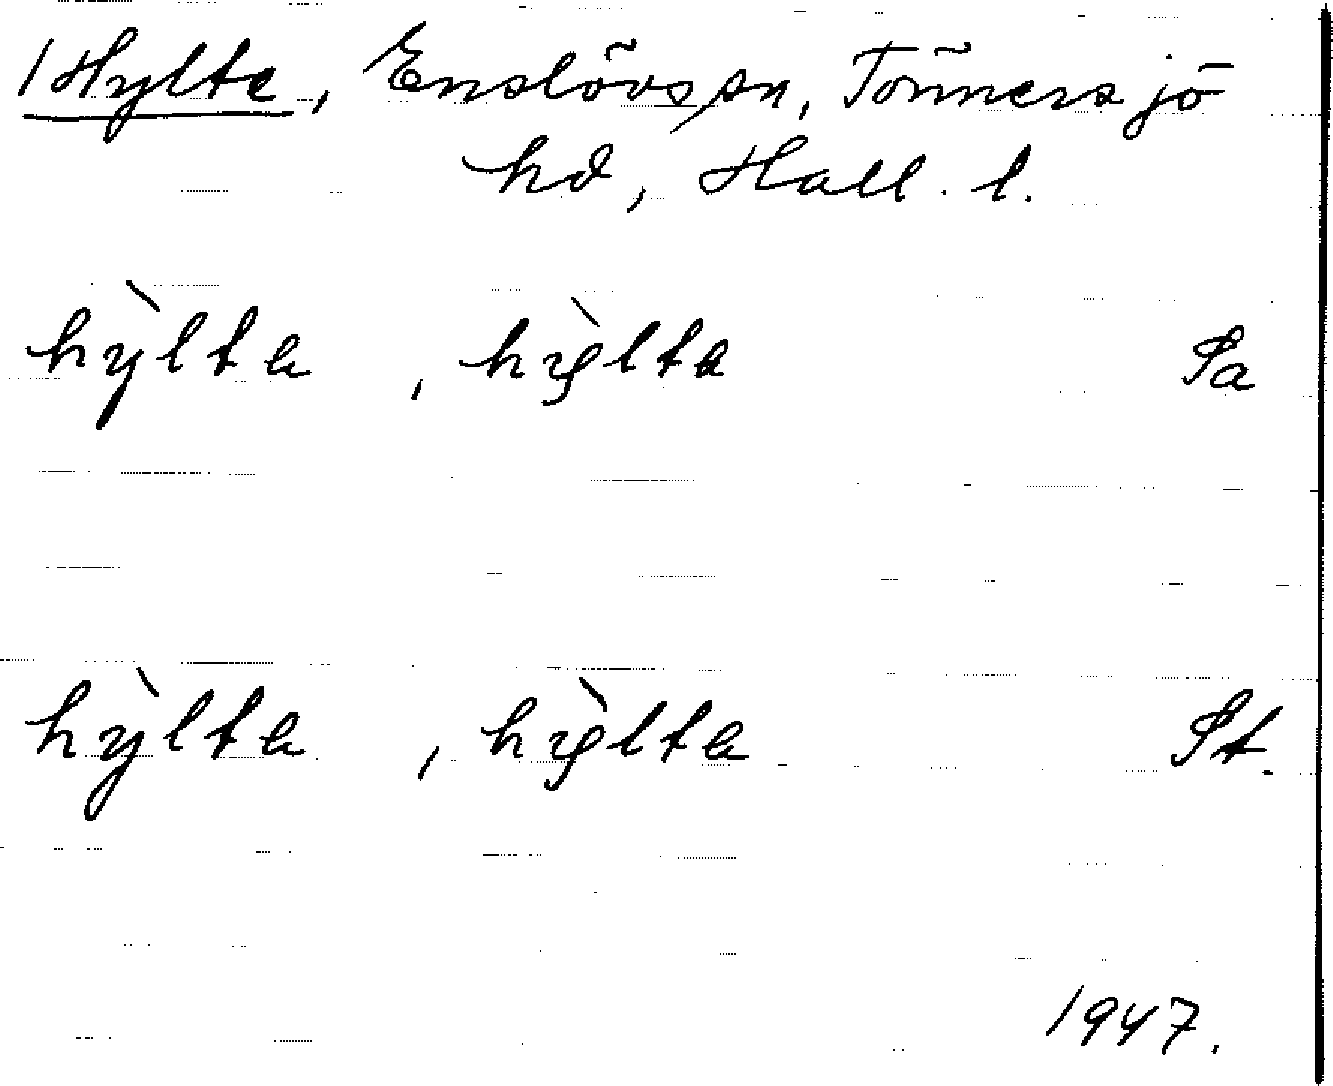 Hylte, Enslövs sn, Tönnersjö
hd, Hall. l.
hỳlta, hỳlta Sa
hỳlta, hỳlta St.
1947.